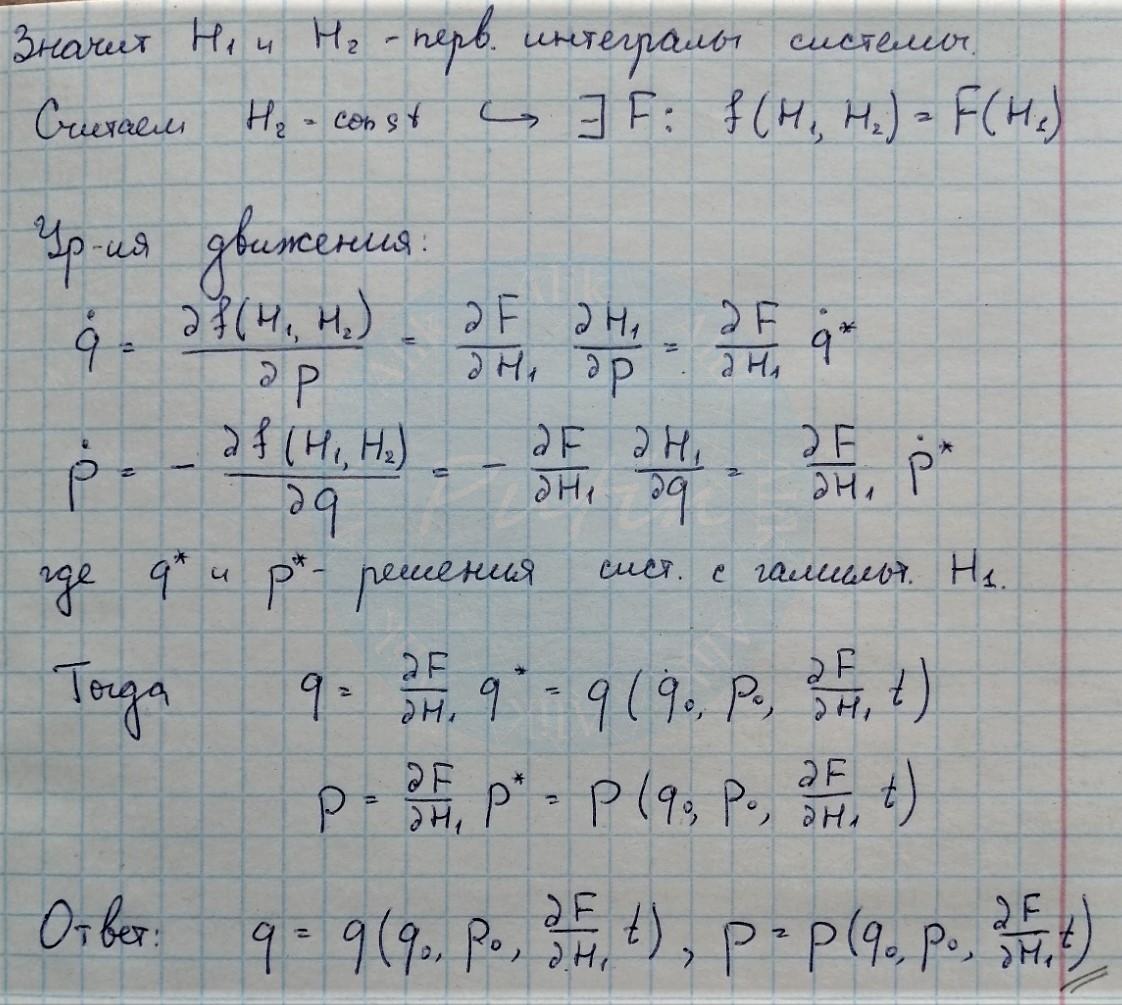 Значит H₁ и H₂ - перв. интегралы системы.
Считаем H₂ = const ↪ ∃ F: f(H₁, H₂) = F(H₁)
Ур-ия движения:
q̇ = ∂f(H₁, H₂)/∂p = ∂F/∂H₁ ∂H₁/∂p = ∂F/∂H₁ q̇*
ṗ = - ∂f(H₁, H₂)/∂q = - ∂F/∂H₁ ∂H₁/∂q = ∂F/∂H₁ ṗ*
где q* и p* - решения сист. с гамильт. H₁.
Тогда q = ∂F/∂H₁ q* = q(q₀, p₀, ∂F/∂H₁ t)
p = ∂F/∂H₁ p* = p(q₀, p₀, ∂F/∂H₁ t)
Ответ: q = q(q₀, p₀, ∂F/∂H₁ t), p = p(q₀, p₀, ∂F/∂H₁ t)